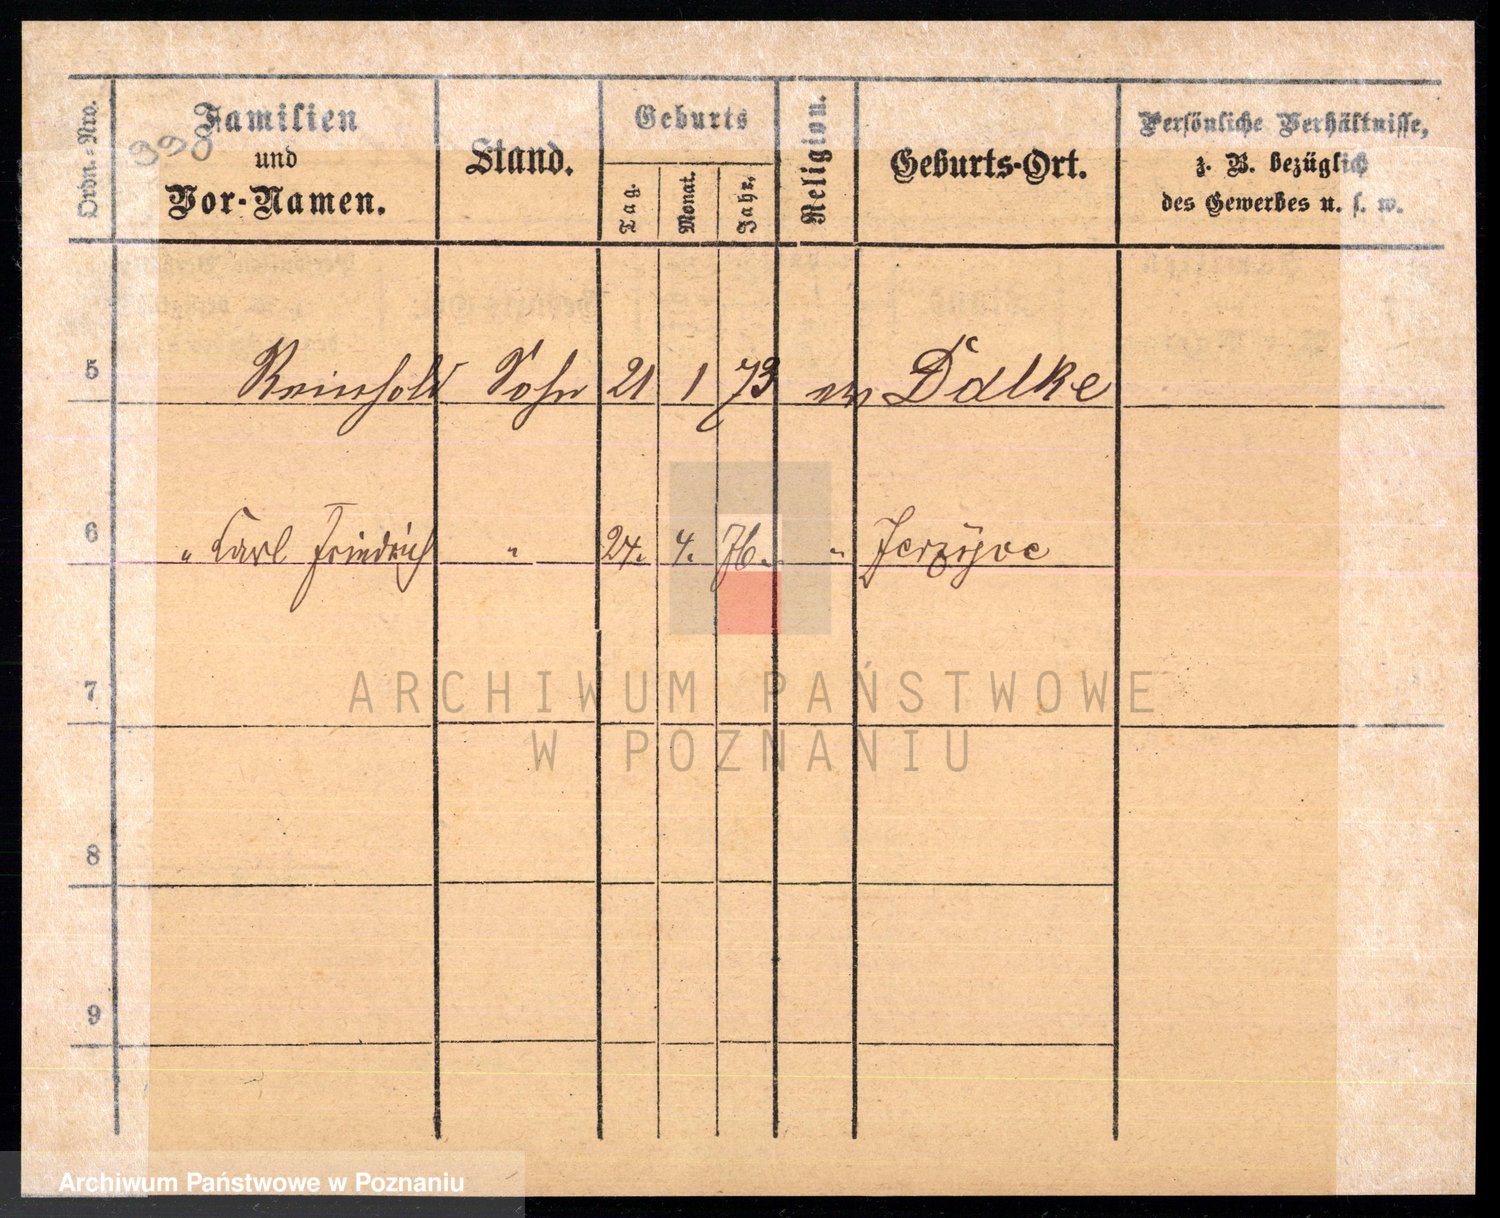 998
Ordn.-Nro.
Familien
und
Vor-Namen.
Stand.
Geburts
Tag.
Monat.
Jahr.
Religion.
Geburts-Ort.
Persönliche Verhältnisse,
z. B. bezüglich
des Gewerbes u. s. w.
5 Reinhold Sohn 21 1 73 ev Dalke
6 " Carl Friedrich " 24. 4. 76. " Jerzyce
7
8
9
ARCHIWUM PAŃSTWOWE
W POZNANIU
Archiwum Państwowe w Poznaniu